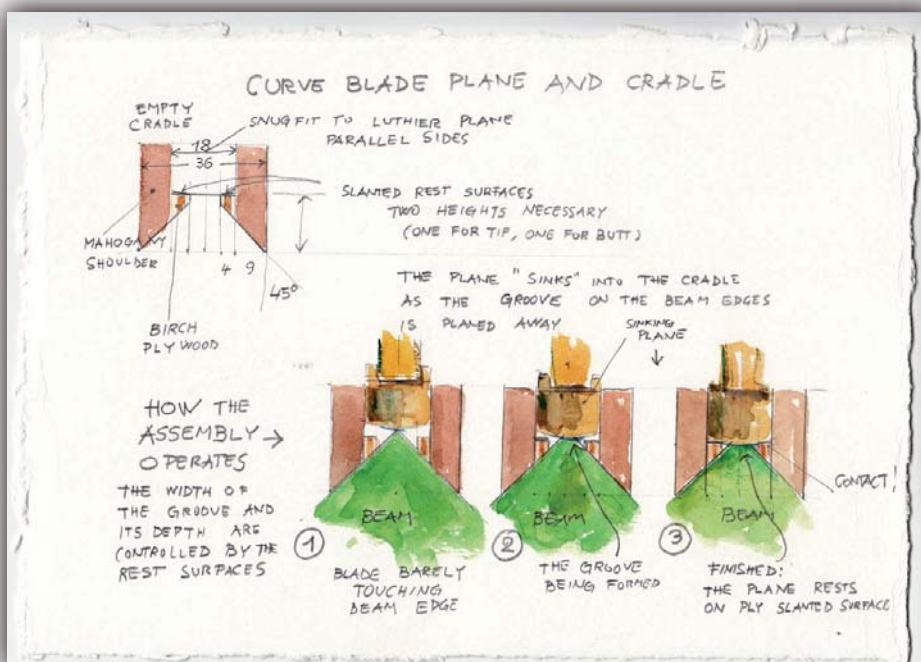 CURVE BLADE PLANE AND CRADLE
EMPTY
CRADLE
SNUG FIT TO LUTHIER PLANE
PARALLEL SIDES
18
36
SLANTED REST SURFACES
TWO HEIGHTS NECESSARY
(ONE FOR TIP, ONE FOR BUTT)
MAHOGANY
SHOULDER
4 9
45°
BIRCH
PLYWOOD
THE PLANE "SINKS" INTO THE CRADLE
AS THE GROOVE ON THE BEAM EDGES
IS PLANED AWAY
SINKING
PLANE
HOW THE
ASSEMBLY →
OPERATES
THE WIDTH OF
THE GROOVE AND
ITS DEPTH ARE
CONTROLLED BY THE
REST SURFACES
1
BEAM
BLADE BARELY
TOUCHING
BEAM EDGE
2
BEAM
THE GROOVE
BEING FORMED
3
BEAM
CONTACT!
FINISHED:
THE PLANE RESTS
ON PLY SLANTED SURFACE